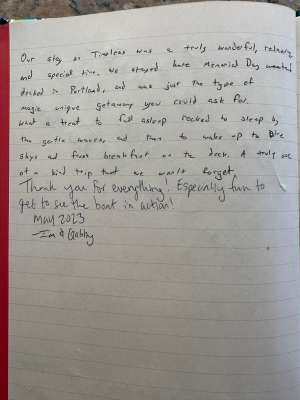 Our stay on Timeless was a truly wonderful, relaxing
and special time. We stayed here Memorial Day weekend
docked in Portland, and was just the type of
magic unique getaway you could ask for.
What a treat to fall asleep rocked to sleep by
the gentle waves, and then to wake up to blue
skys and fresh breakfast on the deck. A truly one
of a kind trip that we won't forget.
Thank you for everything! Especially fun to
get to see the boat in action!
May 2023
& Gabby